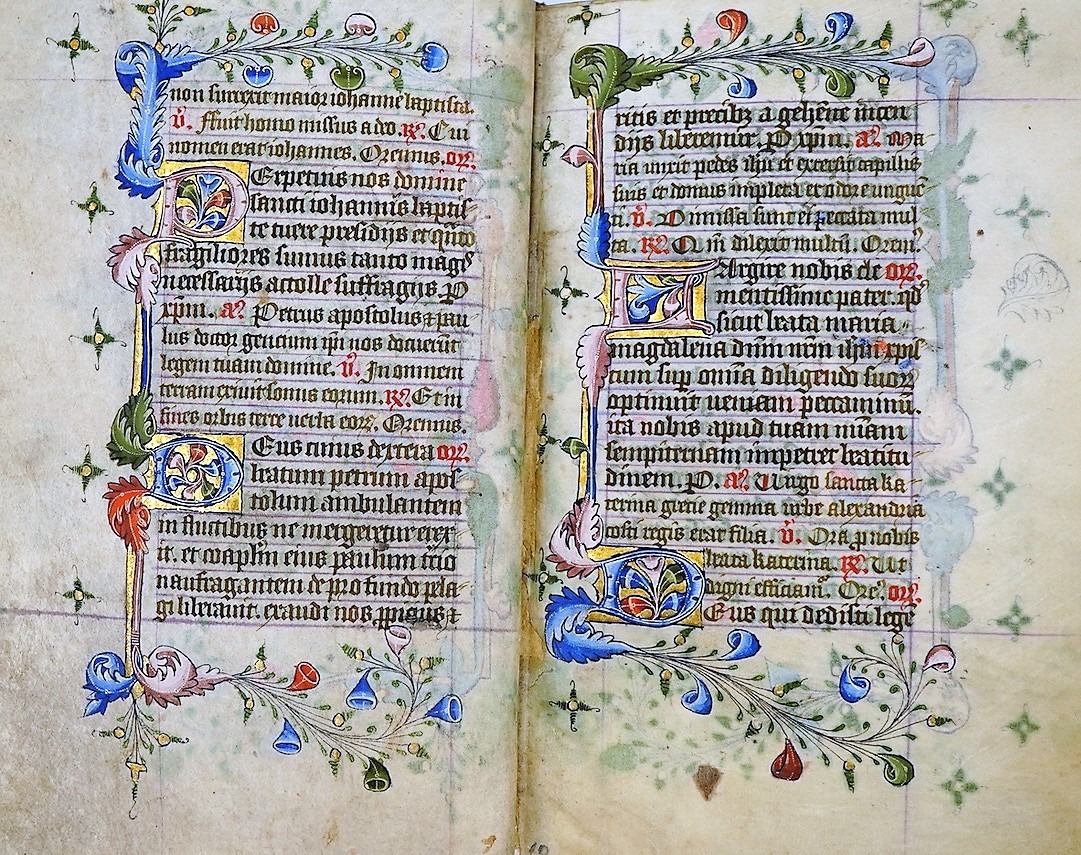 non surrexit maior iohanne baptista.
v̄. ffuit homo missus a deo. r̄. Cui
nomen erat iohannes. Oremus. or̄.
Perpetuis nos domine
sancti iohannis baptis
te tuere presidijs et quāto
fragiliores sumus tanto magꝰ
necessarijs attolle suffragijs. P
xp̄m. a͞. Petrus apostolus ⁊ pau
lus doctor gentium ip̄i nos docuerūt
legem tuam domine. v̄. In omnem
terram exiuit sonus eorum. r̄. Et in
fines orbis terre uerba eorꝝ. Oremus.
Deus cuius dextera or̄.
beatum petrum apos
tolum ambulantem
in fluctibus ne mergeretur erex
it. et coap̄lm eius paulum tercio
naufragantem de profundo pela
gi liberauit. exaudi nos propicius ⁊
ritis et precibꝫ a gehēne incen
dijs liberemur. P xp̄m. a͞. Ma
ria unxit pedes ihū et extersit capillis
suis et domus impleta ex odore unguē
ti. v̄. Dimissa sunt ei peccata mul
ta. r̄. Qm̄ dilexit multū. Orem̄.
Largire nobis cle or̄.
mentissime pater. qđ
sicut beata maria
magdalena dn̄m nr̄m ihm̄ xp̄
cum suꝑ omnia diligendo suorꝝ
optinuit ueniam peccaminū.
ita nobis apud tuam mīam
sempiternam impetret beatitu
dinem. P. a͞. Uirgo sancta ka
terina grecie gemma urbe alexandria
costi regis erat filia. v̄. Ora ꝓ nobis
beata katerina. r̄. Ut
digni efficiam̄. Ore᷒. or̄.
Deus qui dedisti lege